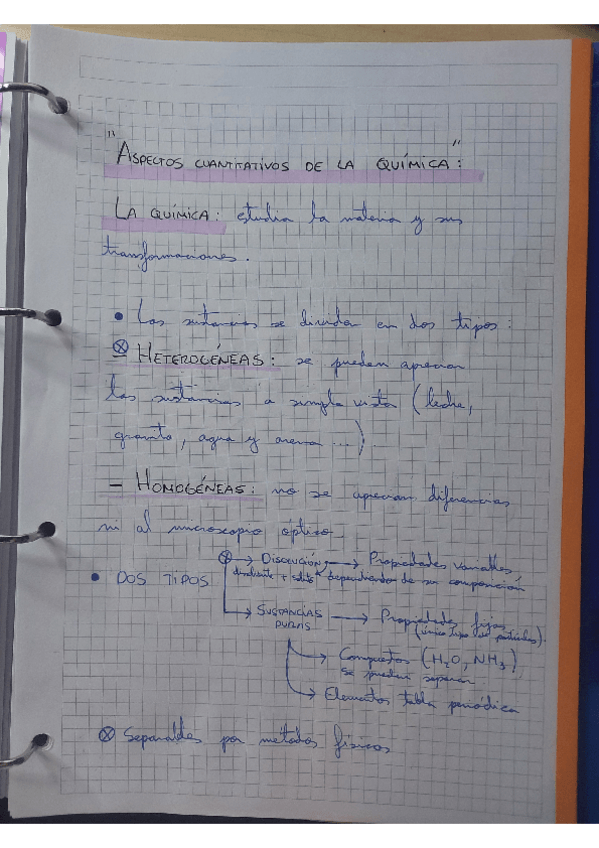 "ASPECTOS CUANTITATIVOS DE LA QUÍMICA":
LA QUÍMICA: estudia la materia y sus
transformaciones.
• Las sustancias se dividen en dos tipos:
⊗ HETEROGÉNEAS: se pueden apreciar
las sustancias a simple vista (leche,
granito, agua y arena ...)
- HOMOGÉNEAS: no se aprecian diferencias
ni al microscopio óptico
⊗ → DISOLUCIÓN → Propiedades variables
disolvente + soluto dependiendo de su composición
• DOS TIPOS
→ SUSTANCIAS PURAS → Propiedades fijas
(único tipo de partículas).
→ Compuestos (H₂O, NH₃)
se pueden separar
→ Elementos tabla periódica
⊗ Separables por métodos físicos